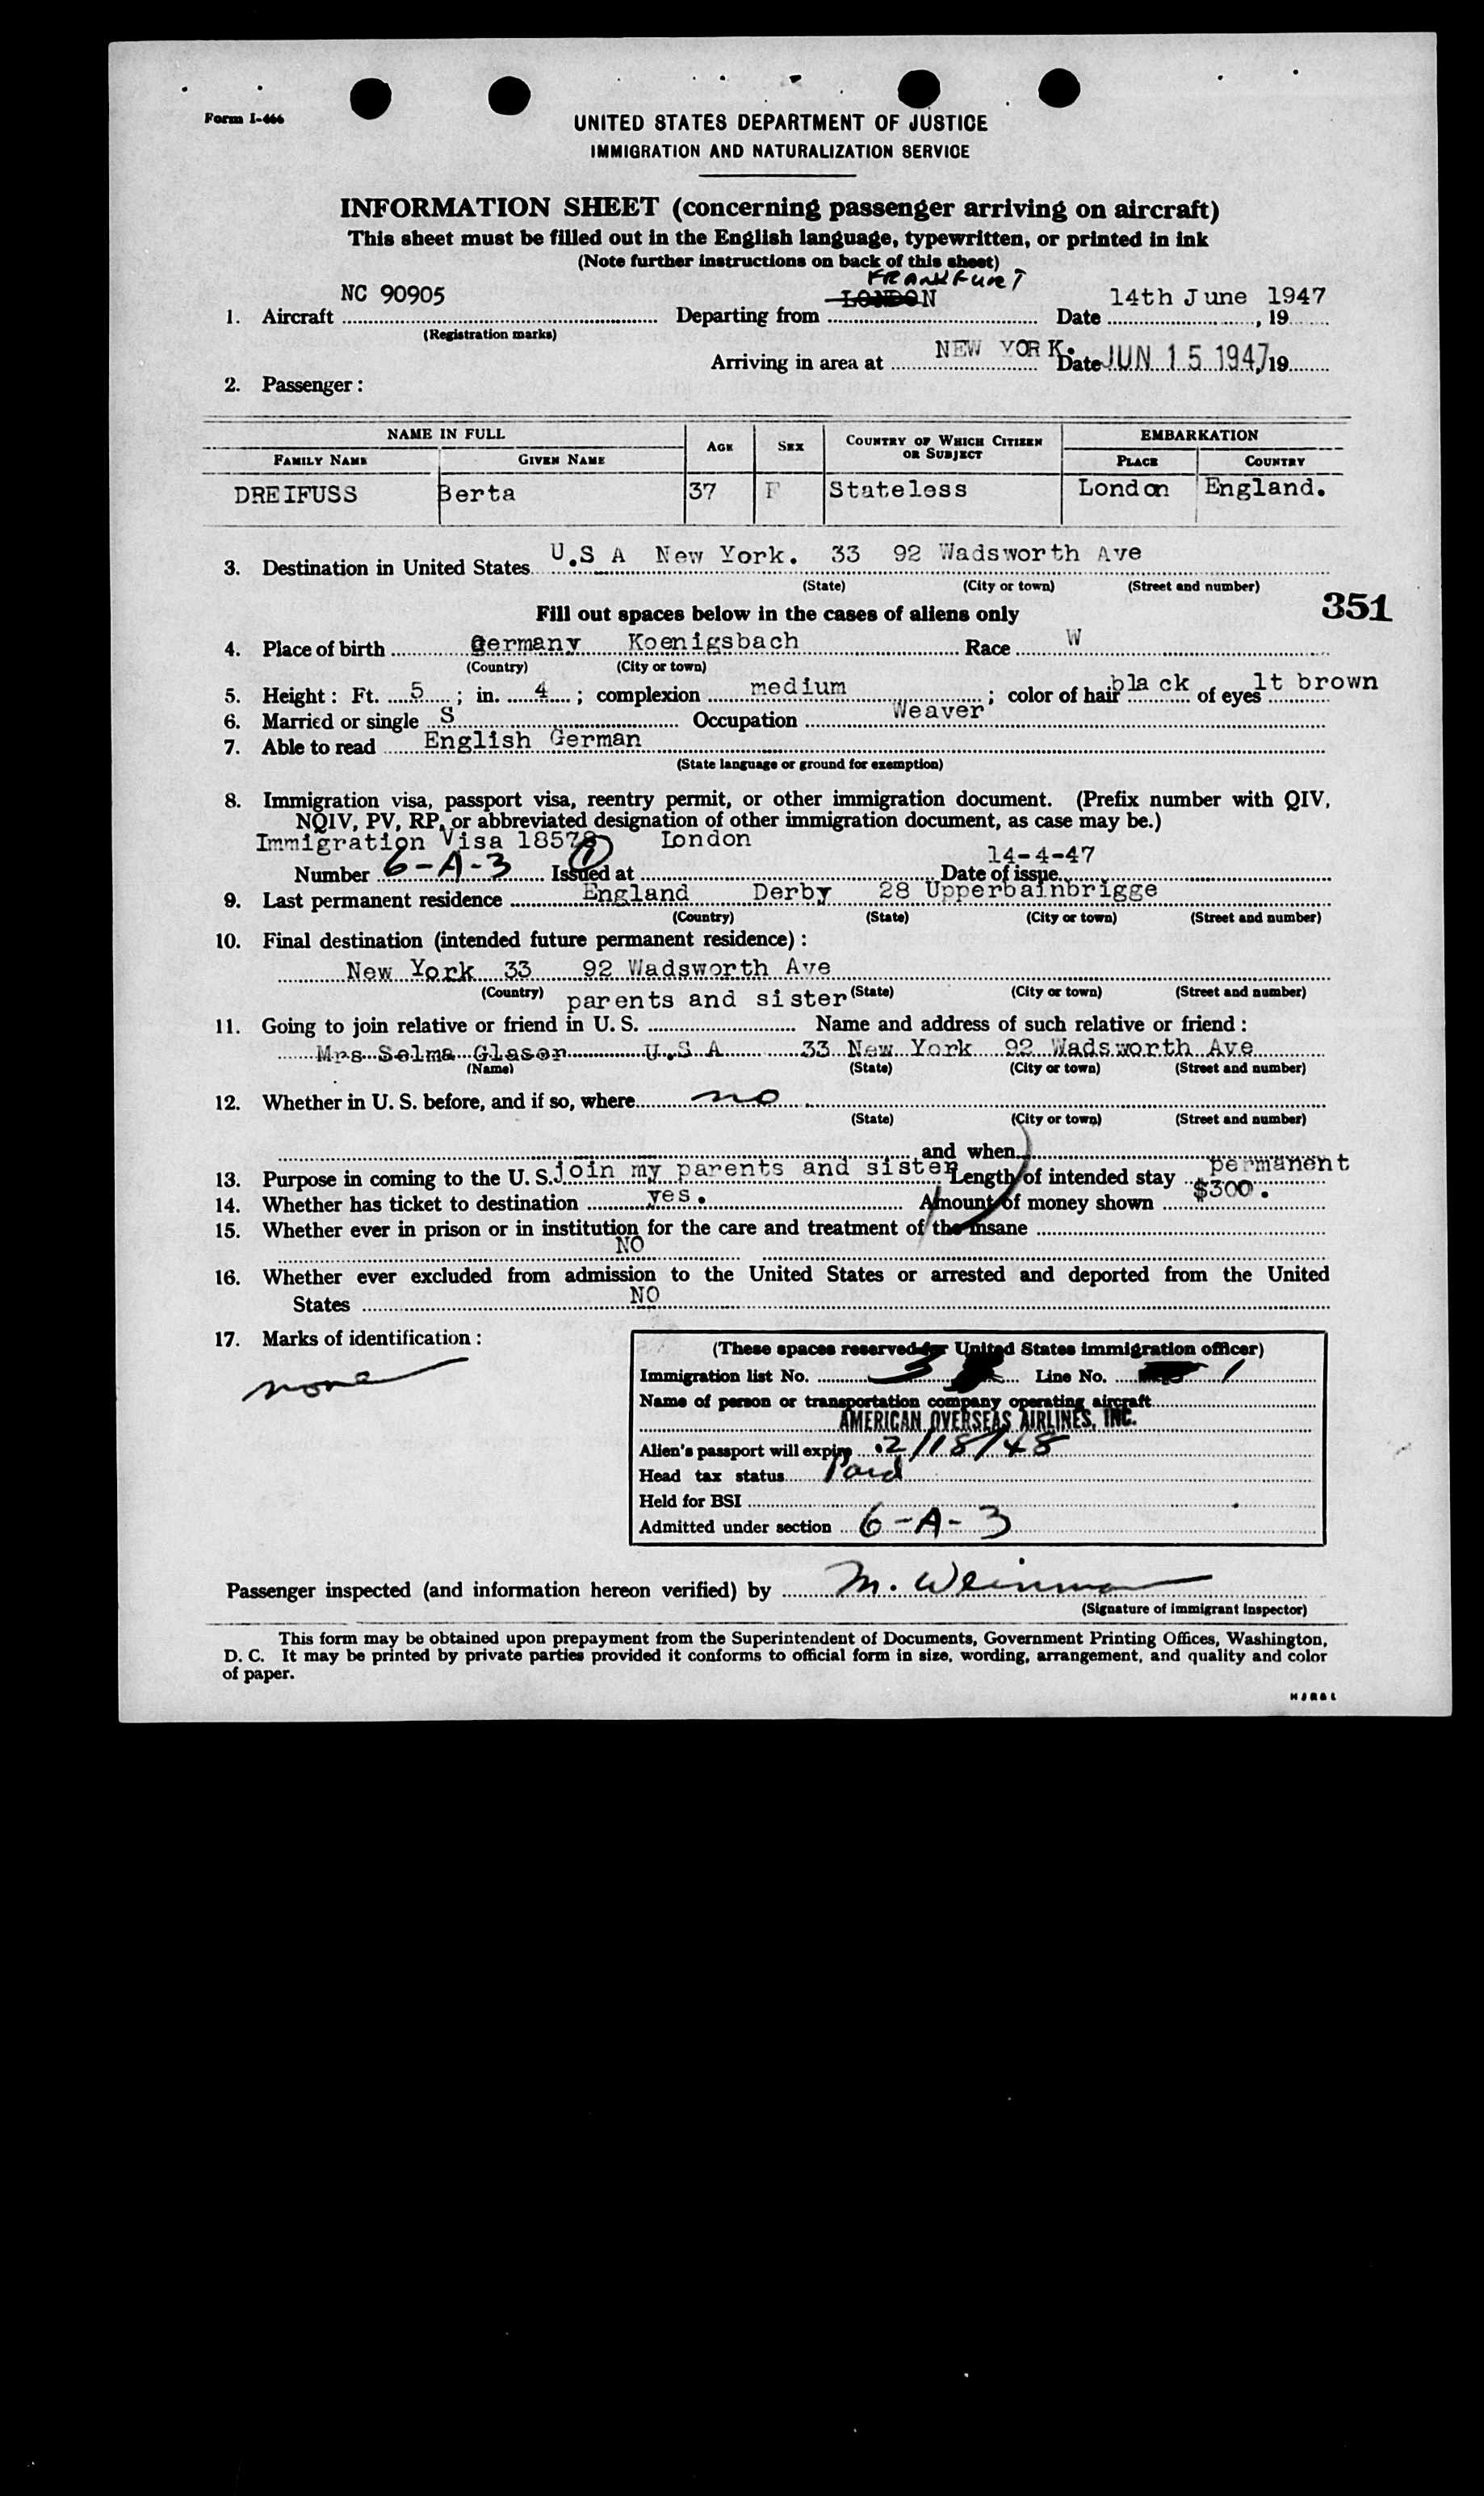 Form I-466
UNITED STATES DEPARTMENT OF JUSTICE
IMMIGRATION AND NATURALIZATION SERVICE
INFORMATION SHEET (concerning passenger arriving on aircraft)
This sheet must be filled out in the English language, typewritten, or printed in ink
(Note further instructions on back of this sheet)
FRANKFURT
1. Aircraft NC 90905 Departing from LONDON Date 14th June 1947, 19
(Registration marks)
Arriving in area at NEW YORK. Date JUN 15 1947, 19
2. Passenger:
NAME IN FULL AGE SEX COUNTRY OF WHICH CITIZEN OR SUBJECT EMBARKATION
FAMILY NAME GIVEN NAME PLACE COUNTRY
DREIFUSS Berta 37 F Stateless London England.
3. Destination in United States U.S A New York. 33 92 Wadsworth Ave
(State) (City or town) (Street and number)
351
Fill out spaces below in the cases of aliens only
4. Place of birth Germany Koenigsbach Race W
(Country) (City or town)
5. Height: Ft. 5; in. 4; complexion medium; color of hair black of eyes lt brown
6. Married or single S Occupation Weaver
7. Able to read English German
(State language or ground for exemption)
8. Immigration visa, passport visa, reentry permit, or other immigration document. (Prefix number with QIV,
NQIV, PV, RP, or abbreviated designation of other immigration document, as case may be.)
Immigration Visa London
Number 6-A-3 Issued at Date of issue 14-4-47
9. Last permanent residence England Derby 28 Upperbainbrigge
(Country) (State) (City or town) (Street and number)
10. Final destination (intended future permanent residence):
New York 33 92 Wadsworth Ave
(Country) (State) (City or town) (Street and number)
11. Going to join relative or friend in U. S. parents and sister Name and address of such relative or friend:
Mrs Selma Glaser U.S A 33 New York 92 Wadsworth Ave
(Name) (State) (City or town) (Street and number)
12. Whether in U. S. before, and if so, where no
(State) (City or town) (Street and number)
and when
13. Purpose in coming to the U. S. join my parents and sister Length of intended stay permanent
14. Whether has ticket to destination yes. Amount of money shown $300.
15. Whether ever in prison or in institution for the care and treatment of the insane
NO
16. Whether ever excluded from admission to the United States or arrested and deported from the United
States NO
17. Marks of identification:
none
(These spaces reserved for United States immigration officer)
Immigration list No. 3 Line No. 1
Name of person or transportation company operating aircraft
AMERICAN OVERSEAS AIRLINES, INC.
Alien's passport will expire 2/18/48
Head tax status Paid
Held for BSI
Admitted under section 6-A-3
Passenger inspected (and information hereon verified) by M. Weinman
(Signature of immigrant inspector)
This form may be obtained upon prepayment from the Superintendent of Documents, Government Printing Offices, Washington,
D. C. It may be printed by private parties provided it conforms to official form in size, wording, arrangement, and quality and color
of paper.